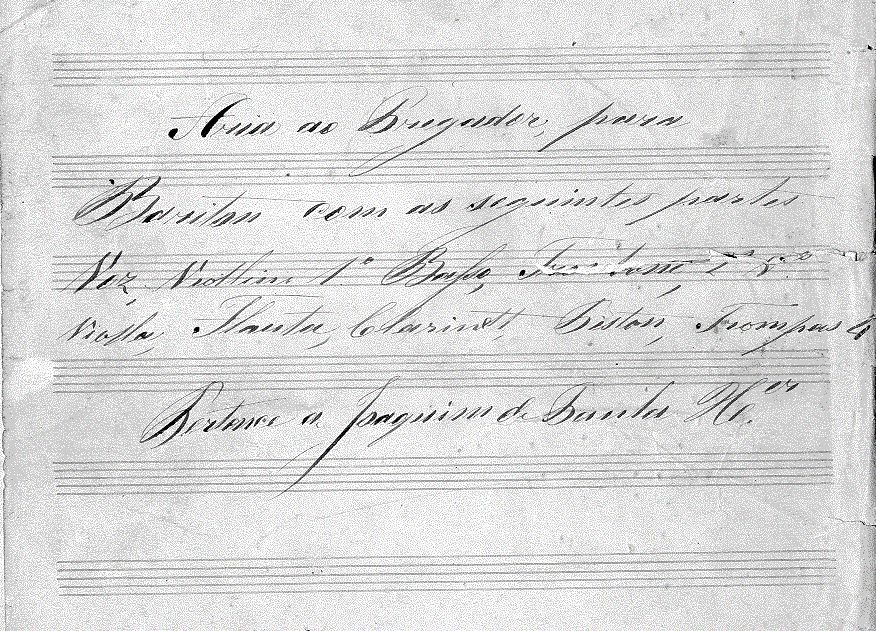 Aria ao Pregador, para
Bariton com as seguintes partes
Voz, Viollin 1º Basso,
Violla, Flauta, Clarinett, Piston, Trompas
Pertence a Joaquim de Paula